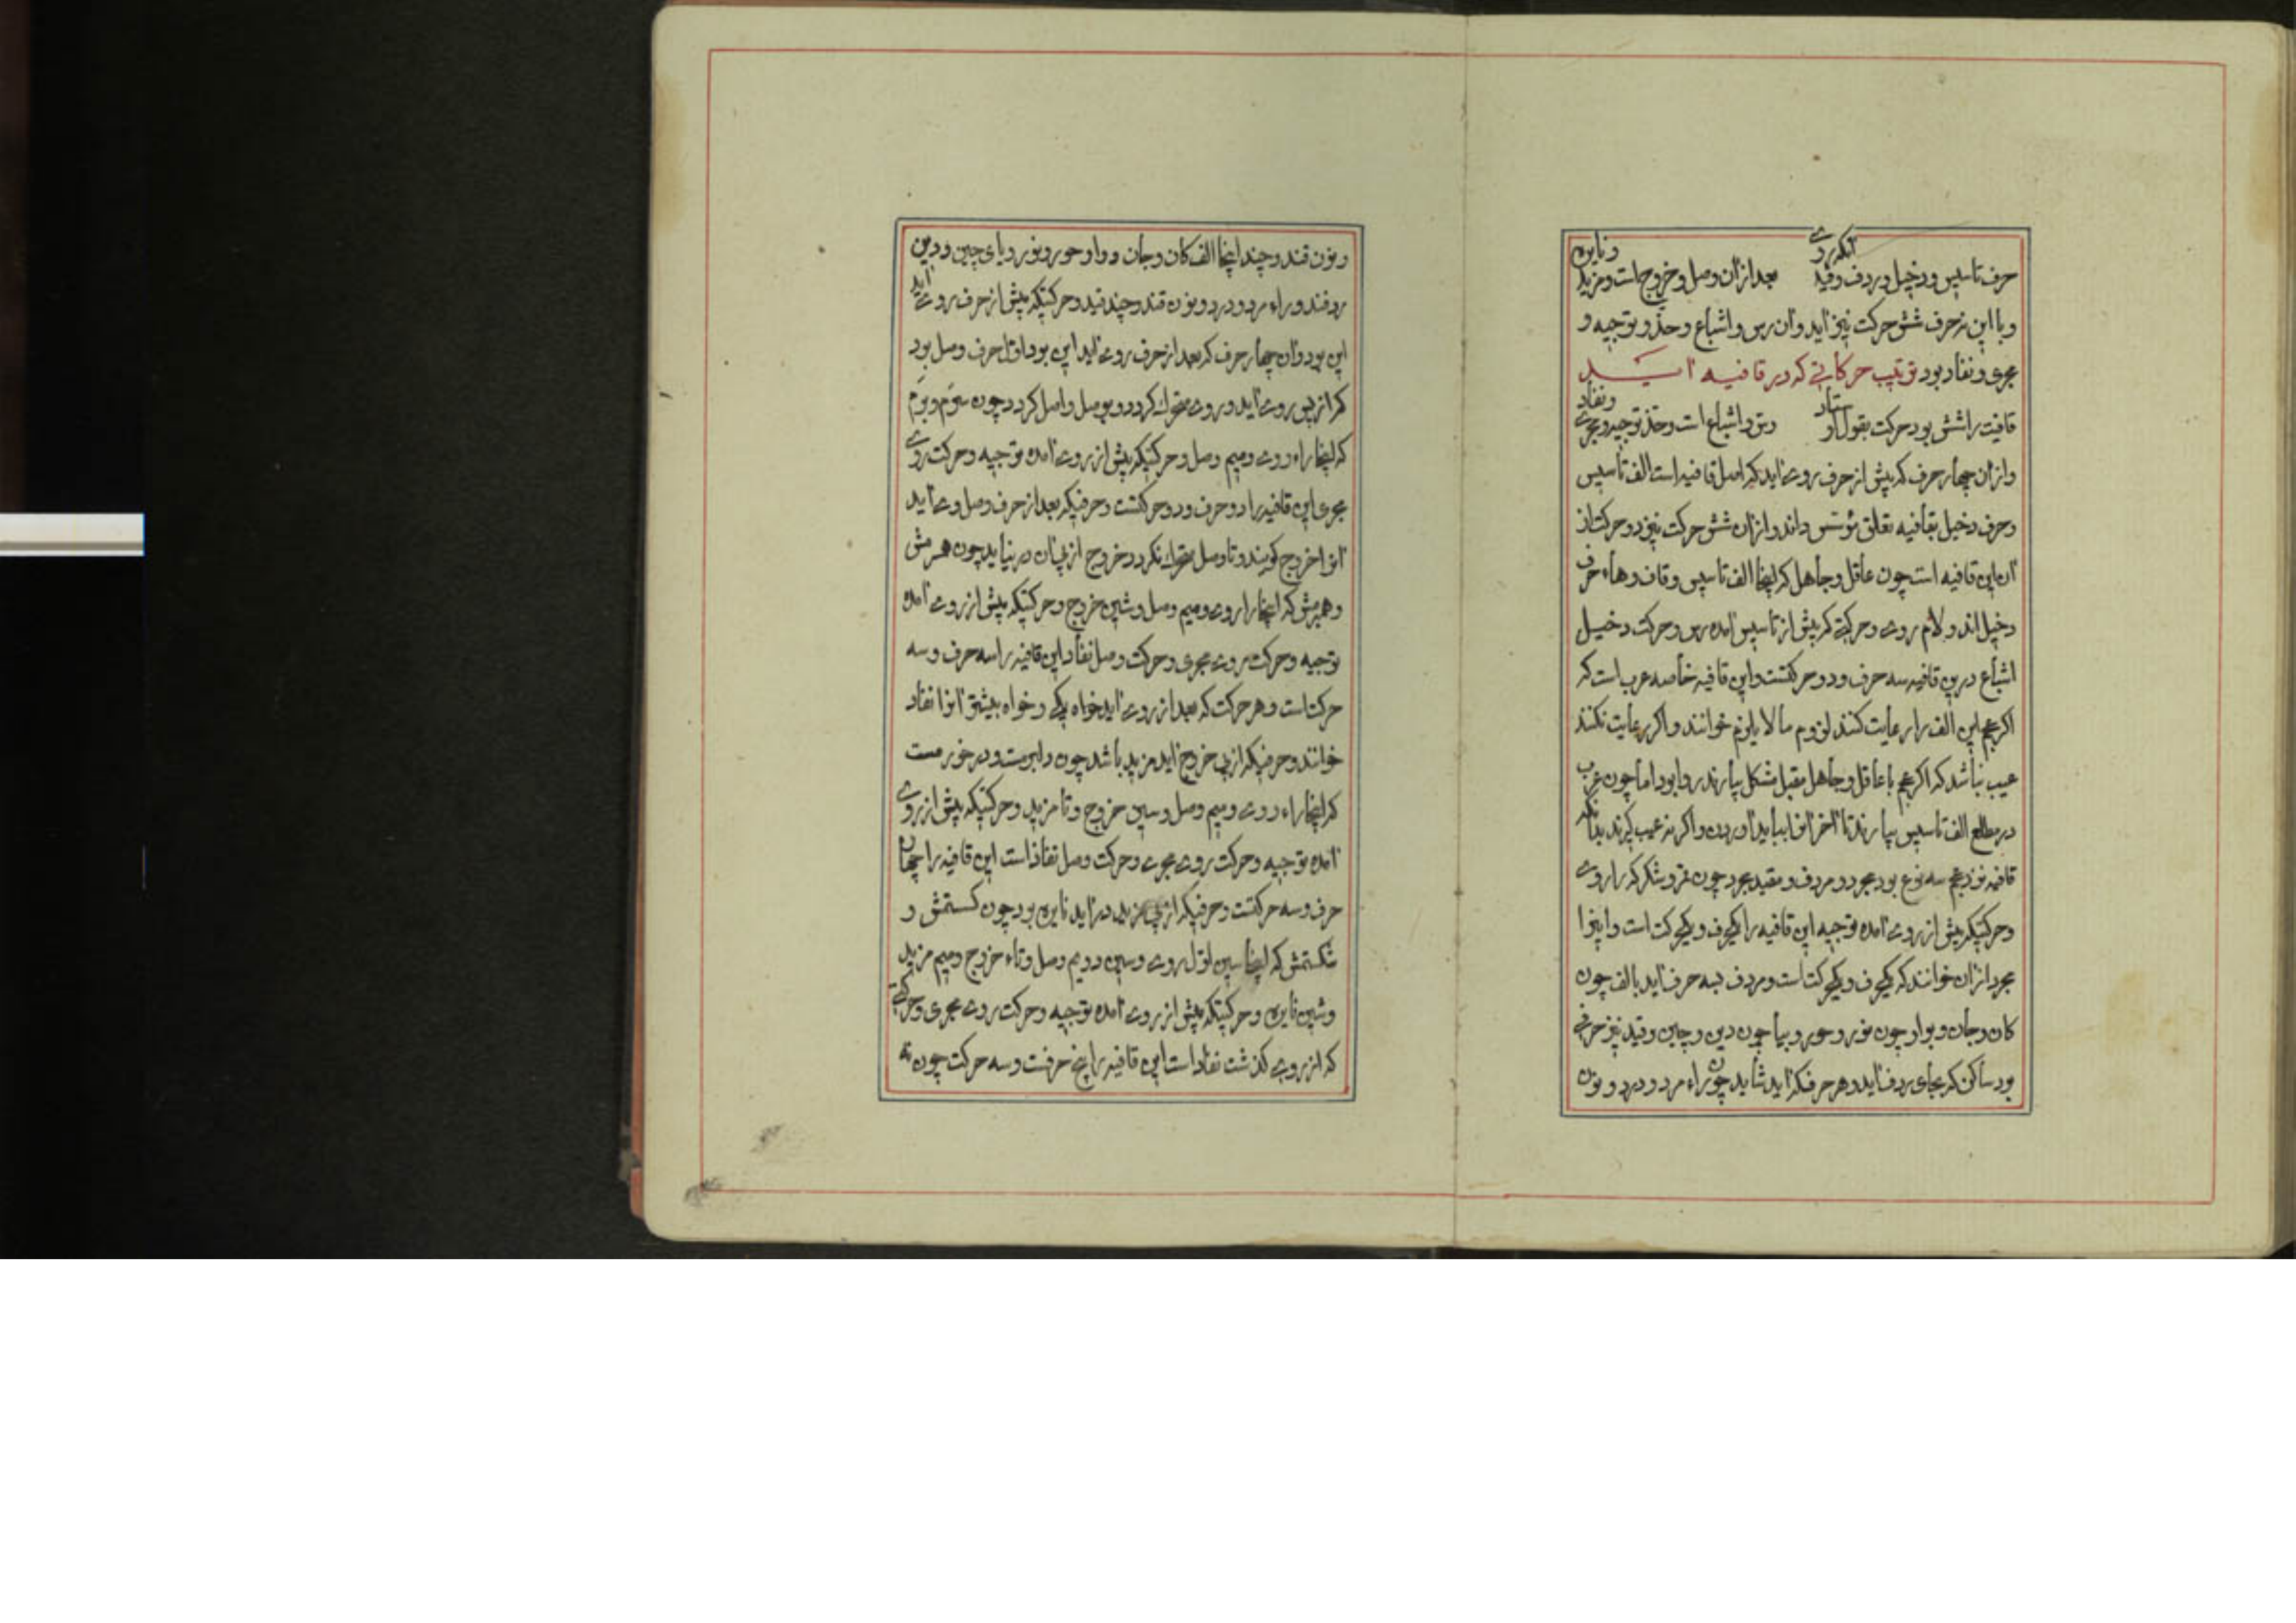 حرف تاسیس ودخیل وردف وقید آنکه روی بعد ازان وصل وخروج است ومزید ونایره
وبا این نه حرف شش حرکت نیز آید وان رس واشباع وحذو وتوجیه و
مجری ونفاد بود ترتیب حرکاتی که در قافیه آید
قافیت را شش بود حرکت بقول اوستاد رس واشباع است وحذو توجیه ومجری ونفاد
وازان چهار حرف که پیش از حرف روی آید که اصل قافیه است الف تاسیس
وحرف دخیل بقافیه تعلق مؤسس داند وازان شش حرکت نیز دو حرکت از
ان این قافیه است چون عاقل وجاهل که اینجا الف تاسیس وقاف وهاء حرف
دخیل اند ولام روی وحرکتی که پیش از تاسیس آمده رس وحرکت دخیل
اشباع درین قافیه سه حرف ودو حرکتست واین قافیه خاصه عرب است که
اکر عجم این الف را رعایت کنند لزوم مالا یلزم خوانند واکر رعایت نکنند
عیب نباشد که اکر عجم با عاقل وجاهل مقبل مشکل بیارند روا بود اما چون عرب
در مطلع الف تاسیس بیارند تا آخر انرا بباید آوردن واکر نه عیب کیرند بدانکه
قافیه نزد عجم سه نوع بود مجرد ومردف ومقید مجرد چون مر وشکر که را روی
وحرکتیکه پیش از روی آمده توجیه این قافیه را یکحرف ویکحرکت است واینرا
مجرد ازان خوانند که یکحرف ویکحرکت است ومردف بسه حرف آید بالف چون
کان وجان وبواو چون نور وحور وبیا چون دین وچین وقید نیز حرفی
بود ساکن که بجای ردف آید وهر حرف که آید شاید چون راء مرد ودرد ونون
ونون قند وچند اینجا الف کان وجان وواو حور ونور ویای چین ودین
ردفند وراء مرد ودرد ونون قند وچند قید وحرکتیکه پیش از حرف روی آید
این بود وان چهار حرف که بعد از حرف روی آید این بود اول حرف وصل بود
که از پس روی آید وروی متحرک کردد وبوصل واصل کردد چون سرم وبرم
که اینجا راء روی ومیم وصل وحرکتیکه پیش از روی آمده توجیه وحرکت روی
مجری این قافیه را دو حرف ودو حرکتست وحرفیکه بعد از حرف وصل وی آید
انرا خروج کویند وتا وصل متحرک نکردد خروج از پی آن در نیاید چون سرمش
وبرمش که اینجا را روی ومیم وصل وشین خروج وحرکتیکه پیش از روی آمده
توجیه وحرکت روی مجری وحرکت وصل نفاد این قافیه را سه حرف وسه
حرکت است وهر حرکت که بعد از روی آید خواه یکی وخواه بیشتر انرا نفاد
خوانند وحرفیکه از پی خروج آید مزید باشد چون دابرمست ودرخورمست
که اینجا راء روی ومیم وصل وسین خروج وتا مزید وحرکتیکه پیش از روی
آمده توجیه وحرکت روی مجری وحرکت وصل نفاذ است این قافیه را چهار
حرف وسه حرکتست وحرفیکه از پی مزید در آید نایره بود چون کسستمش و
شکستمش که اینجا سین اول روی وسین دویم وصل وتاء خروج ومیم مزید
وشین نایره وحرکتیکه پیش از روی آمده توجیه وحرکت روی مجری وحرکتی
که از روی کذشت نفاد است این قافیه را پنج حرفست وسه حرکت چون نه